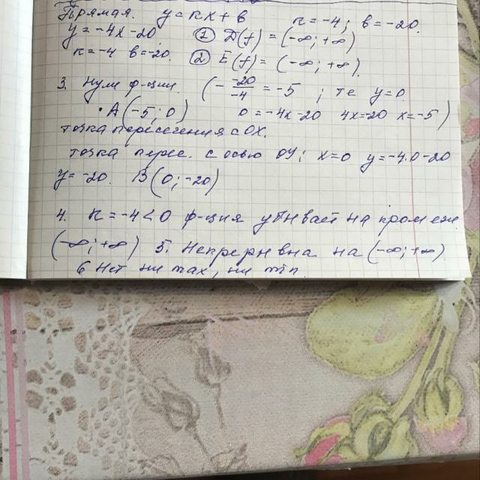 Прямая. y = kx + b k = -4; b = -20.
y = -4x - 20 ① D(f) = (-∞; +∞)
k = -4 b = -20. ② E(f) = (-∞; +∞).
3. Нули ф-ции. (- -20/-4 = -5 ; те y = 0
• A(-5; 0) 0 = -4x - 20 4x = 20 x = -5)
точка пересечения с OX.
точка перес. с осью OY; x = 0 y = -4·0 - 20
y = -20. B(0; -20)
4. k = -4 < 0 ф-ция убывает на пром
(-∞; +∞) 5. Непрерывна на (-∞; +∞)
6 Нет ни max, ни min